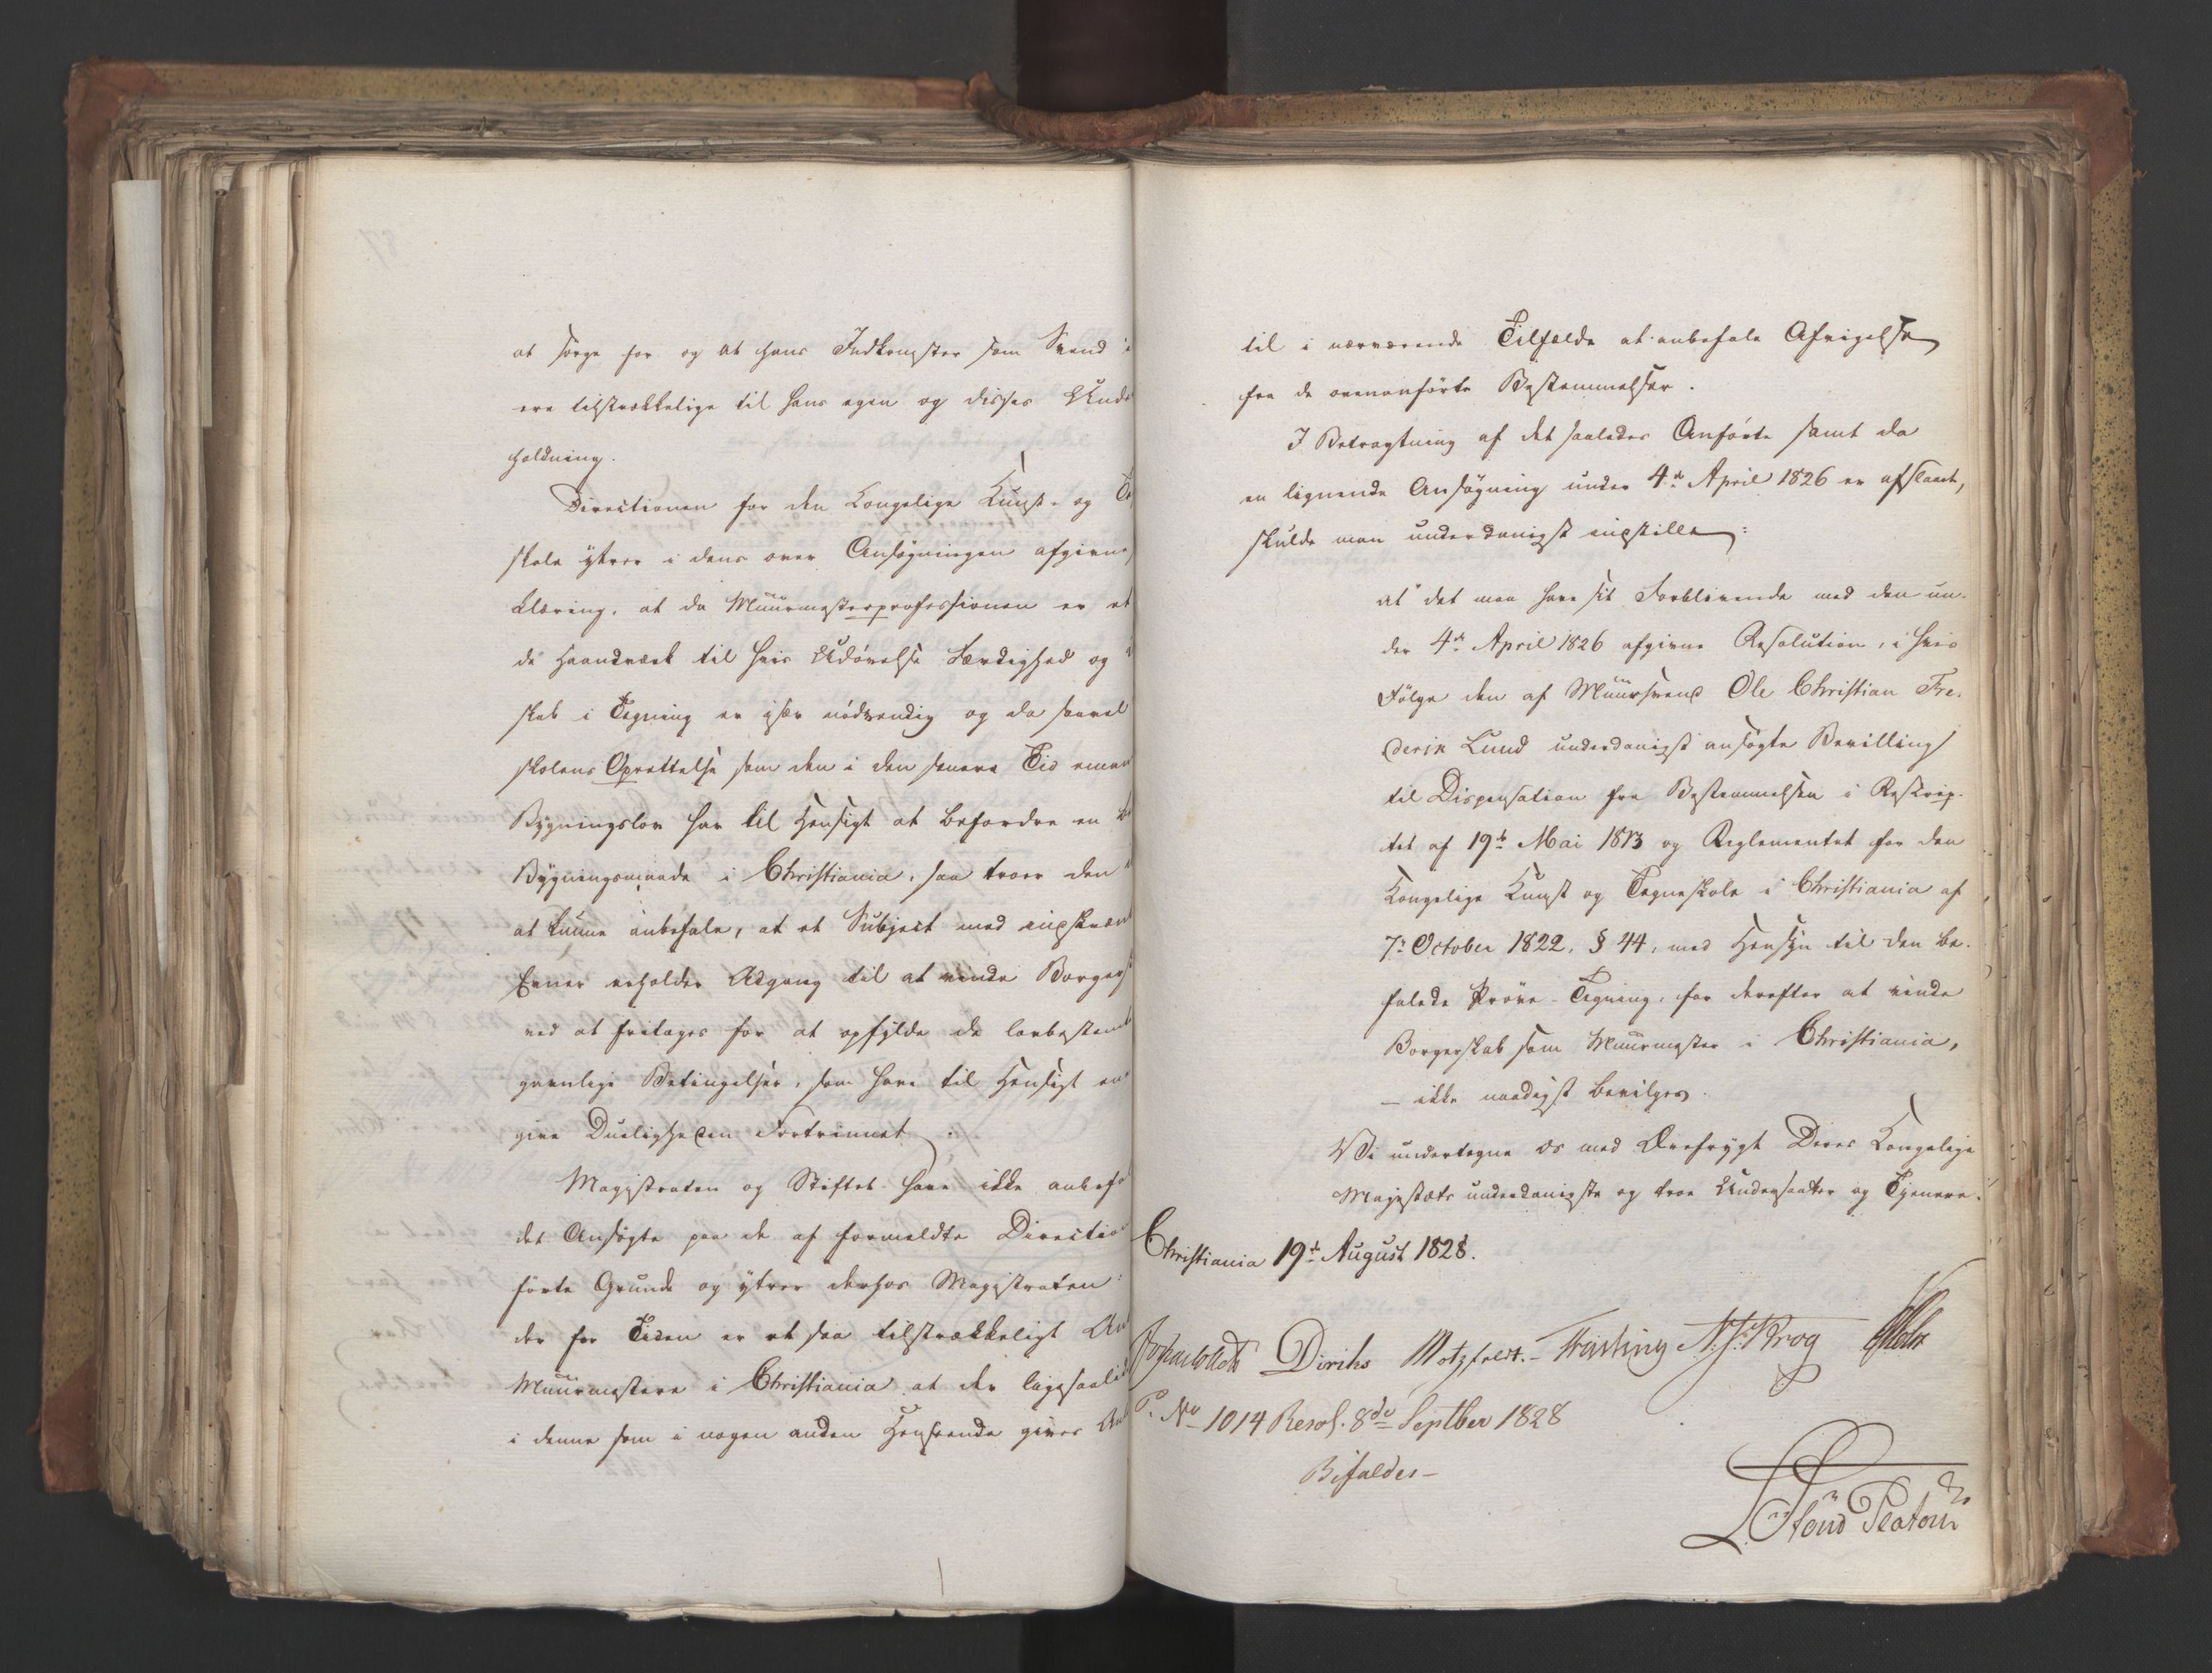 at sørge for og at hans Indkomster som Svend i
ere tilstrækkelige til hans egen og disses Unde
holdning.
Directionen for den Kongelige Kunst- og Te
skole yttrer i dens over Ansøgningen afgivne
klæring, at da Muurmesterprofessionen er et
de Haandværk til hvis Udøvelse Færdighed og
skab i Tegning er især nødvendig og da saavel
skolens Oprettelse som den i den senere Tid eman
Bygningslov har til Hensigt at befordre en be
Bygningsmaade i Christiania, saa troer den
at kunne anbefale, at et Subject med indskræn
Evner erholder Adgang til at vinde Borgers
ved at fritages for at opfylde de lovbestemt
gavnlige Betingelser, som have til Hensigt en
give Dueligheden Fortrinnet.
Magistraten og Stiftet have ikke anbefa
det Ansøgte paa de af formeldte Directio
førte Grunde og yttrer derhos Magistraten:
der for Tiden er et saa tilstrækkeligt An
Muurmestere i Christiania at der ligesaalid
i denne som i nogen anden Henseende gives An
til i nærværende Tilfælde at anbefale Afvigelse
fra de ovenanførte Bestemmelser.
I Betragtning af det saaledes Anførte samt da
en lignende Ansøgning under 4de April 1826 er afslaaet,
skulde man underdanigst indstille:
at det maa have sit Forblivende med den un-
der 4de April 1826 afgivne Resolution, i hvis
Følge den af Muursvend Ole Christian Fre-
derik Lund underdanigst ansøgte Bevilling
til Dispensation fra Bestemmelsen i Rescrip-
tet af 19de Mai 1813 og Reglementet for den
Kongelige Kunst og Tegneskole i Christiania af
7de October 1822, § 44, med Hensyn til den be-
falede Prøve-Tegning, for derefter at vinde
Borgerskab som Muurmester i Christiania,
— ikke naadigst bevilges.
Vi undertegne os med Ærefrygt Deres Kongelige
Majestæts underdanigste og troe Undersaatter og Tjenere.
Christiania 19de August 1828.
Diriks Motzfeldt. N. J. Krog Holst
P. No 1014 Resol. 8de Septber 1828
Bifaldes —